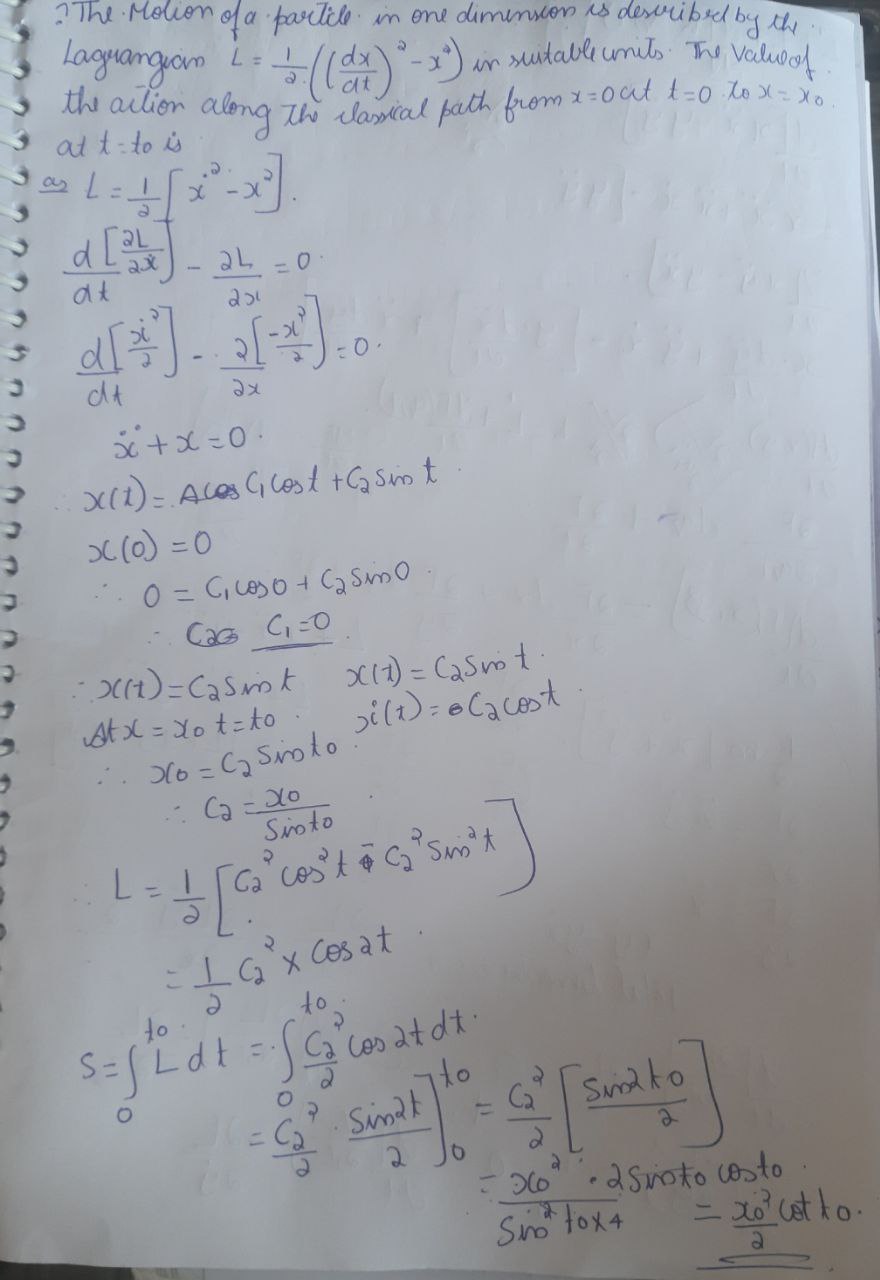 ? The Motion of a particle in one dimension is described by the
Laguangian L = 1/2 ((dx/dt)² - x²) in suitable units. The Value of
the action along The classical path from x=0 at t=0 to x=x₀
at t=t₀ is
as L = 1/2 [ẋ² - x²].
d/dt [∂L/∂ẋ] - ∂L/∂x = 0.
d/dt [ẋ²/2] - ∂/∂x [-x²/2] = 0.
ẍ + x = 0.
∴ x(t) = C₁cost + C₂sint.
x(0) = 0
∴ 0 = C₁cos0 + C₂sin0.
∴ C₁=0.
∴ x(t) = C₂sint x(t) = C₂sint.
At x = x₀ t=t₀. ẋ(t) = C₂cost.
∴ x₀ = C₂ sint₀
∴ C₂ = x₀/sint₀.
∴ L = 1/2 [C₂² cos²t - C₂² sin²t]
= 1/2 C₂² × cos2t.
S = ∫₀^t₀ L dt = ∫₀^t₀ C₂²/2 cos2t dt.
= C₂²/2 · sin2t/2]₀^t₀ = C₂²/2 [sin2t₀/2]
= x₀²/(sin²t₀×4) · 2sint₀ cost₀.
= x₀²/2 cot t₀.